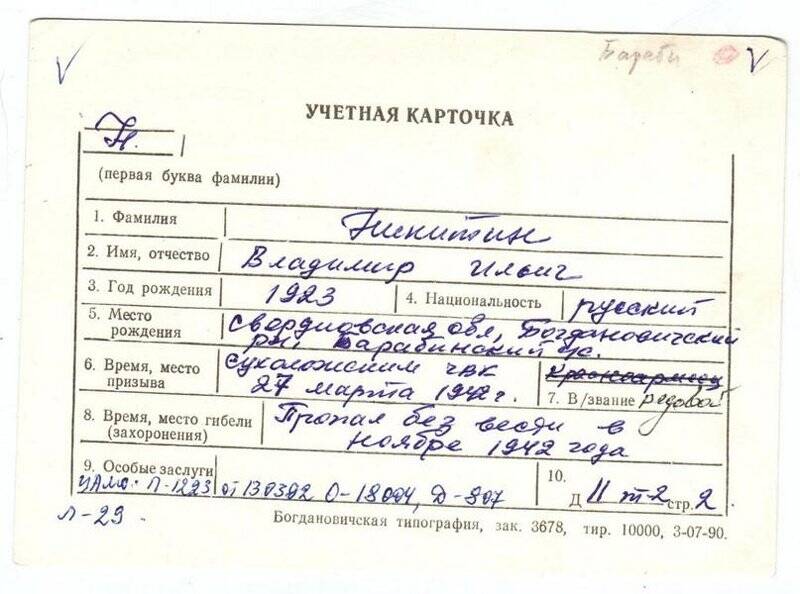 V
V
УЧЕТНАЯ КАРТОЧКА
Н.
(первая буква фамилии)
1. Фамилия Никитин
2. Имя, отчество Владимир Ильич
3. Год рождения 1923 4. Национальность русский
5. Место рождения Свердловская обл, Богдановичский
рн. Барабинский с/с.
6. Время, место призыва Сухоложским ГВК
27 марта 1942 г.
Красноармеец
7. В/звание рядовой
8. Время, место гибели (захоронения) Пропал без вести в
ноябре 1942 года
9. Особые заслуги
ЦАМО: П-1223 от 130392 О-18004, Д-807
10.
Д II т-2 стр. 2
л-29
Богдановичская типография, зак. 3678, тир. 10000, 3-07-90.